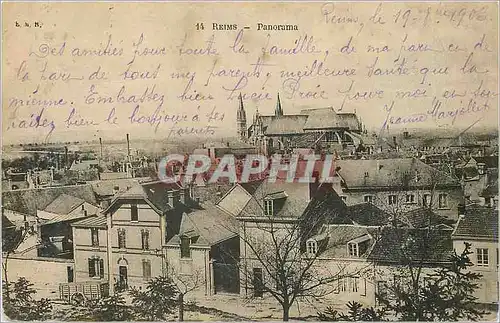 L. & R.
14 REIMS – Panorama
Reims, le 19
Des amitiés pour toute la famille, de ma part et de
la part de tous mes parents, meilleure santé que la
mienne. Embrassez bien Lucie pour moi, et
bien le bonjour à tes
parents
Jeanne
CPARAMA